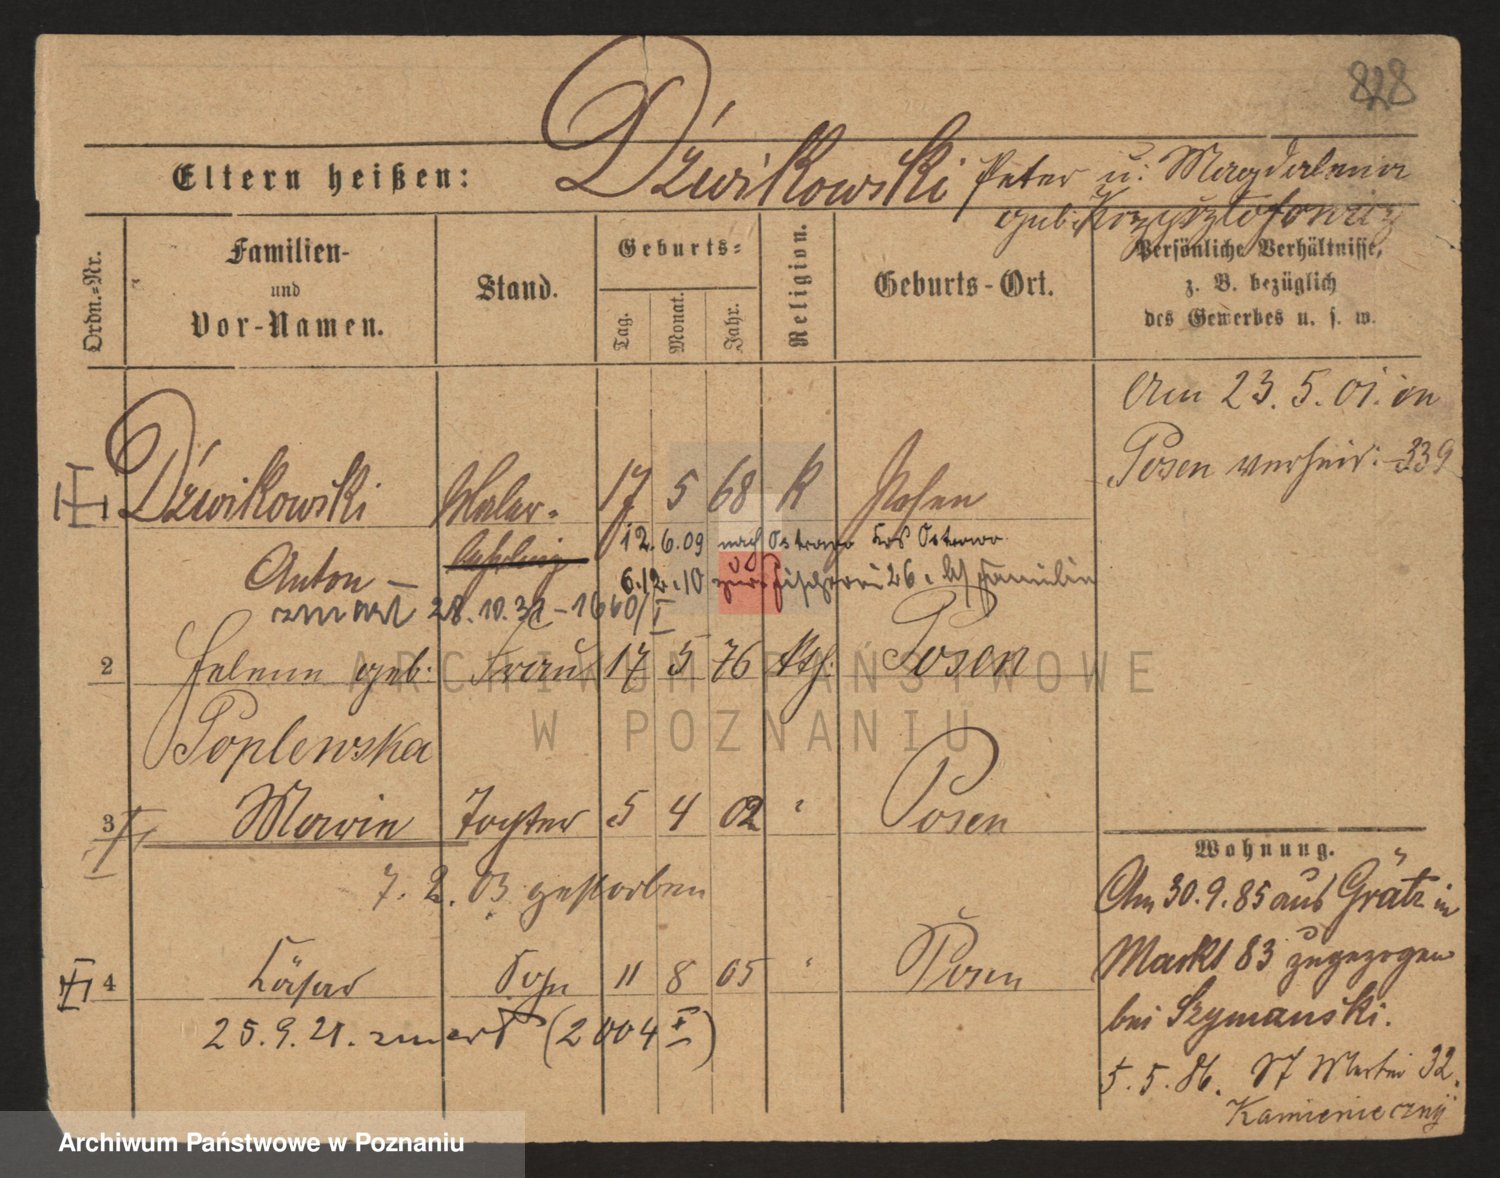 828
Eltern heißen: Dźwikowski Peter u. Magdalena
geb. Krzysztofowicz
Ordn.-Nr.
Familien-
und
Vor-Namen.
Stand.
Geburts-
Tag.
Monat.
Jahr.
Religion.
Geburts-Ort.
Persönliche Verhältnisse,
z. B. bezüglich
des Gewerbes u. s. w.
Am 23. 5. 01. in
Posen verheir. 339
Dźwikowski Maler- 17 5 68 K Posen
Anton — Lehrling
12. 6. 09 nach Ostrowo Krs Ostrowo
6. 12. 10 zur Fischerei 26.
zmarł 28. 10. 31 - 1660/I
2 Helene geb. Frau 17 5 76 Kth. Posen
Poplewska
3 Marie Tochter 5 4 02 " Posen
7. 2. 03 gestorben
4 Cäsar Sohn 11 8 05 " Posen
25. 9. 21. zmarł (2004 I)
Wohnung.
Am 30. 9. 85 aus Grätz in
Markt 83 zugezogen
bei Szymanski.
5. 5. 86. St Martin 32.
Kamienieczny
ARCHIWUM PAŃSTWOWE
W POZNANIU
Archiwum Państwowe w Poznaniu